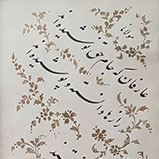 عارفان که جام حق نوشیده‌اند
رازها دانسته و پوشیده‌اند